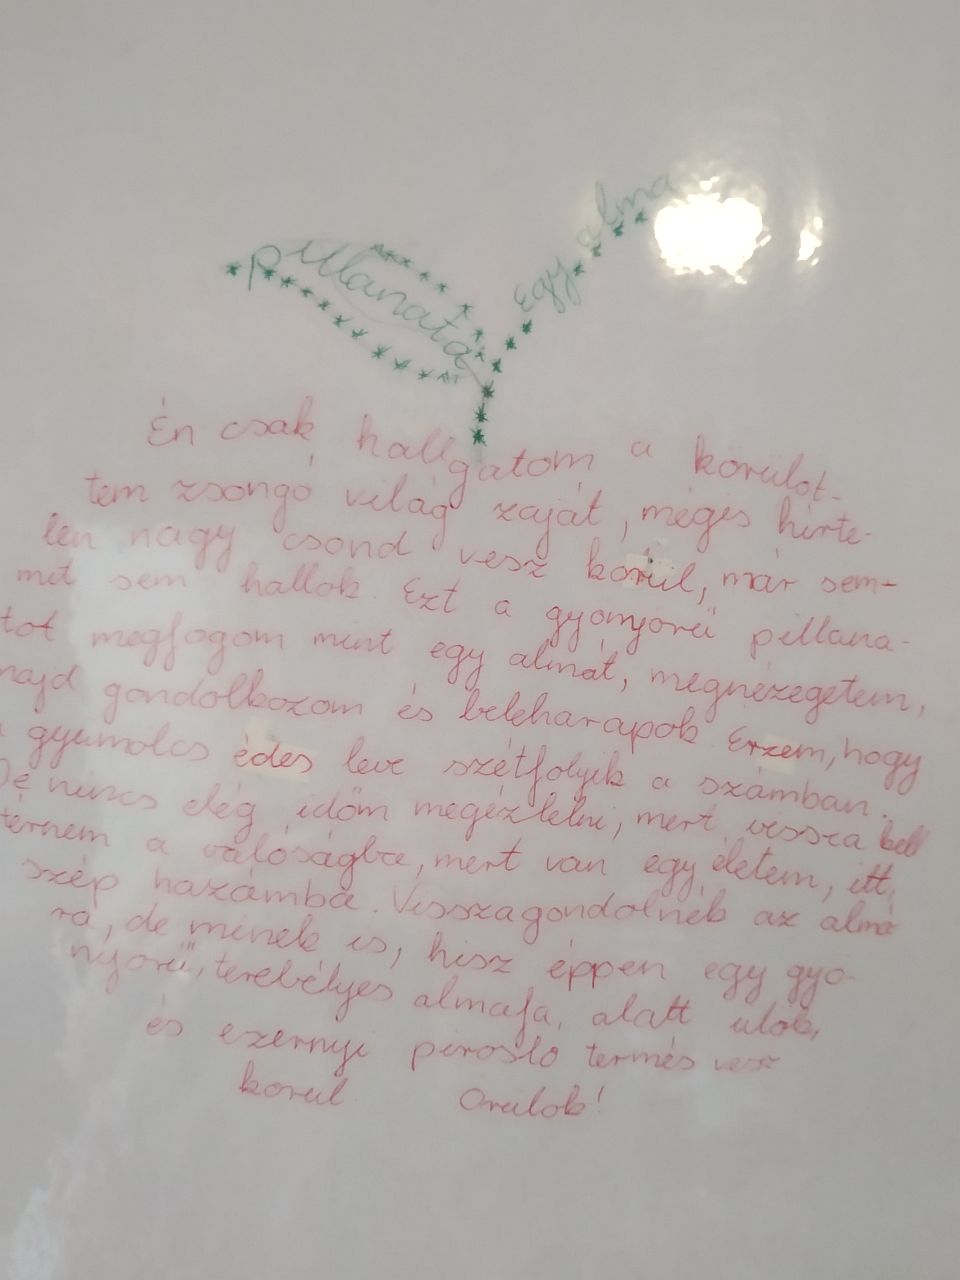 Egy alma
pillanata
Én csak hallgatom a korulot-
tem zsongó világ zaját, mégis hirte-
len nagy csond vesz korul, már sem-
mit sem hallok. Ezt a gyonyorű pillana-
tot megfogom mint egy almát, megnézegetem,
majd gondolkozom és beleharapok. Érzem, hogy
a gyumolcs édes leve szétfolyik a számban.
De nincs elég időm megízlelni, mert vissza kell
térnem a valóságba, mert van egy életem, itt,
szép hazámba. Visszagondolnék az almá
ra, de minek is, hisz éppen egy gyo-
nyorű, terebélyes almafa, alatt ulok,
és ezernyi piroslo termés vesz
korul. Orulok!